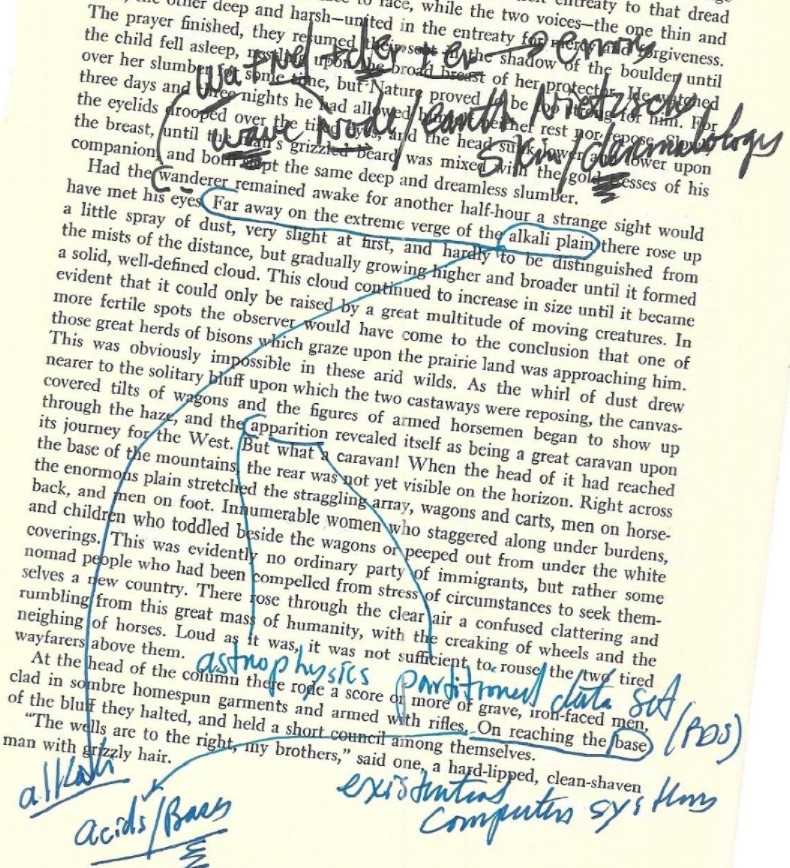 the other deep and harsh—united in the entreaty for mercy and forgiveness.
The prayer finished, they resumed their seat in the shadow of the boulder until
the child fell asleep, nestling upon the broad breast of her protector. He watched
over her slumber for some time, but Nature proved to be too strong for him. For
three days and three nights he had allowed himself neither rest nor repose.
the eyelids drooped over the tired eyes, and the head sunk lower and lower upon
the breast, until the man's grizzled beard was mixed with the gold tresses of his
companion, and both slept the same deep and dreamless slumber.
wa + nd + der + er → errors
wave Node / earth Nietzsche
skin / dermatology
Had the wanderer remained awake for another half-hour a strange sight would
have met his eyes. Far away on the extreme verge of the alkali plain there rose up
a little spray of dust, very slight at first, and hardly to be distinguished from
the mists of the distance, but gradually growing higher and broader until it formed
a solid, well-defined cloud. This cloud continued to increase in size until it became
evident that it could only be raised by a great multitude of moving creatures. In
more fertile spots the observer would have come to the conclusion that one of
those great herds of bisons which graze upon the prairie land was approaching him.
This was obviously impossible in these arid wilds. As the whirl of dust drew
nearer to the solitary bluff upon which the two castaways were reposing, the canvas-
covered tilts of wagons and the figures of armed horsemen began to show up
through the haze, and the apparition revealed itself as being a great caravan upon
its journey for the West. But what a caravan! When the head of it had reached
the base of the mountains, the rear was not yet visible on the horizon. Right across
the enormous plain stretched the straggling array, wagons and carts, men on horse-
back, and men on foot. Innumerable women who staggered along under burdens,
and children who toddled beside the wagons or peeped out from under the white
coverings. This was evidently no ordinary party of immigrants, but rather some
nomad people who had been compelled from stress of circumstances to seek them-
selves a new country. There rose through the clear air a confused clattering and
rumbling from this great mass of humanity, with the creaking of wheels and the
neighing of horses. Loud as it was, it was not sufficient to rouse the two tired
wayfarers above them.
astrophysics partitioned data set (PDS)
At the head of the column there rode a score or more of grave, iron-faced men,
clad in sombre homespun garments and armed with rifles. On reaching the base
of the bluff they halted, and held a short council among themselves.
"The wells are to the right, my brothers," said one, a hard-lipped, clean-shaven
man with grizzly hair.
alkali
acids/Bases
existential
computer systems